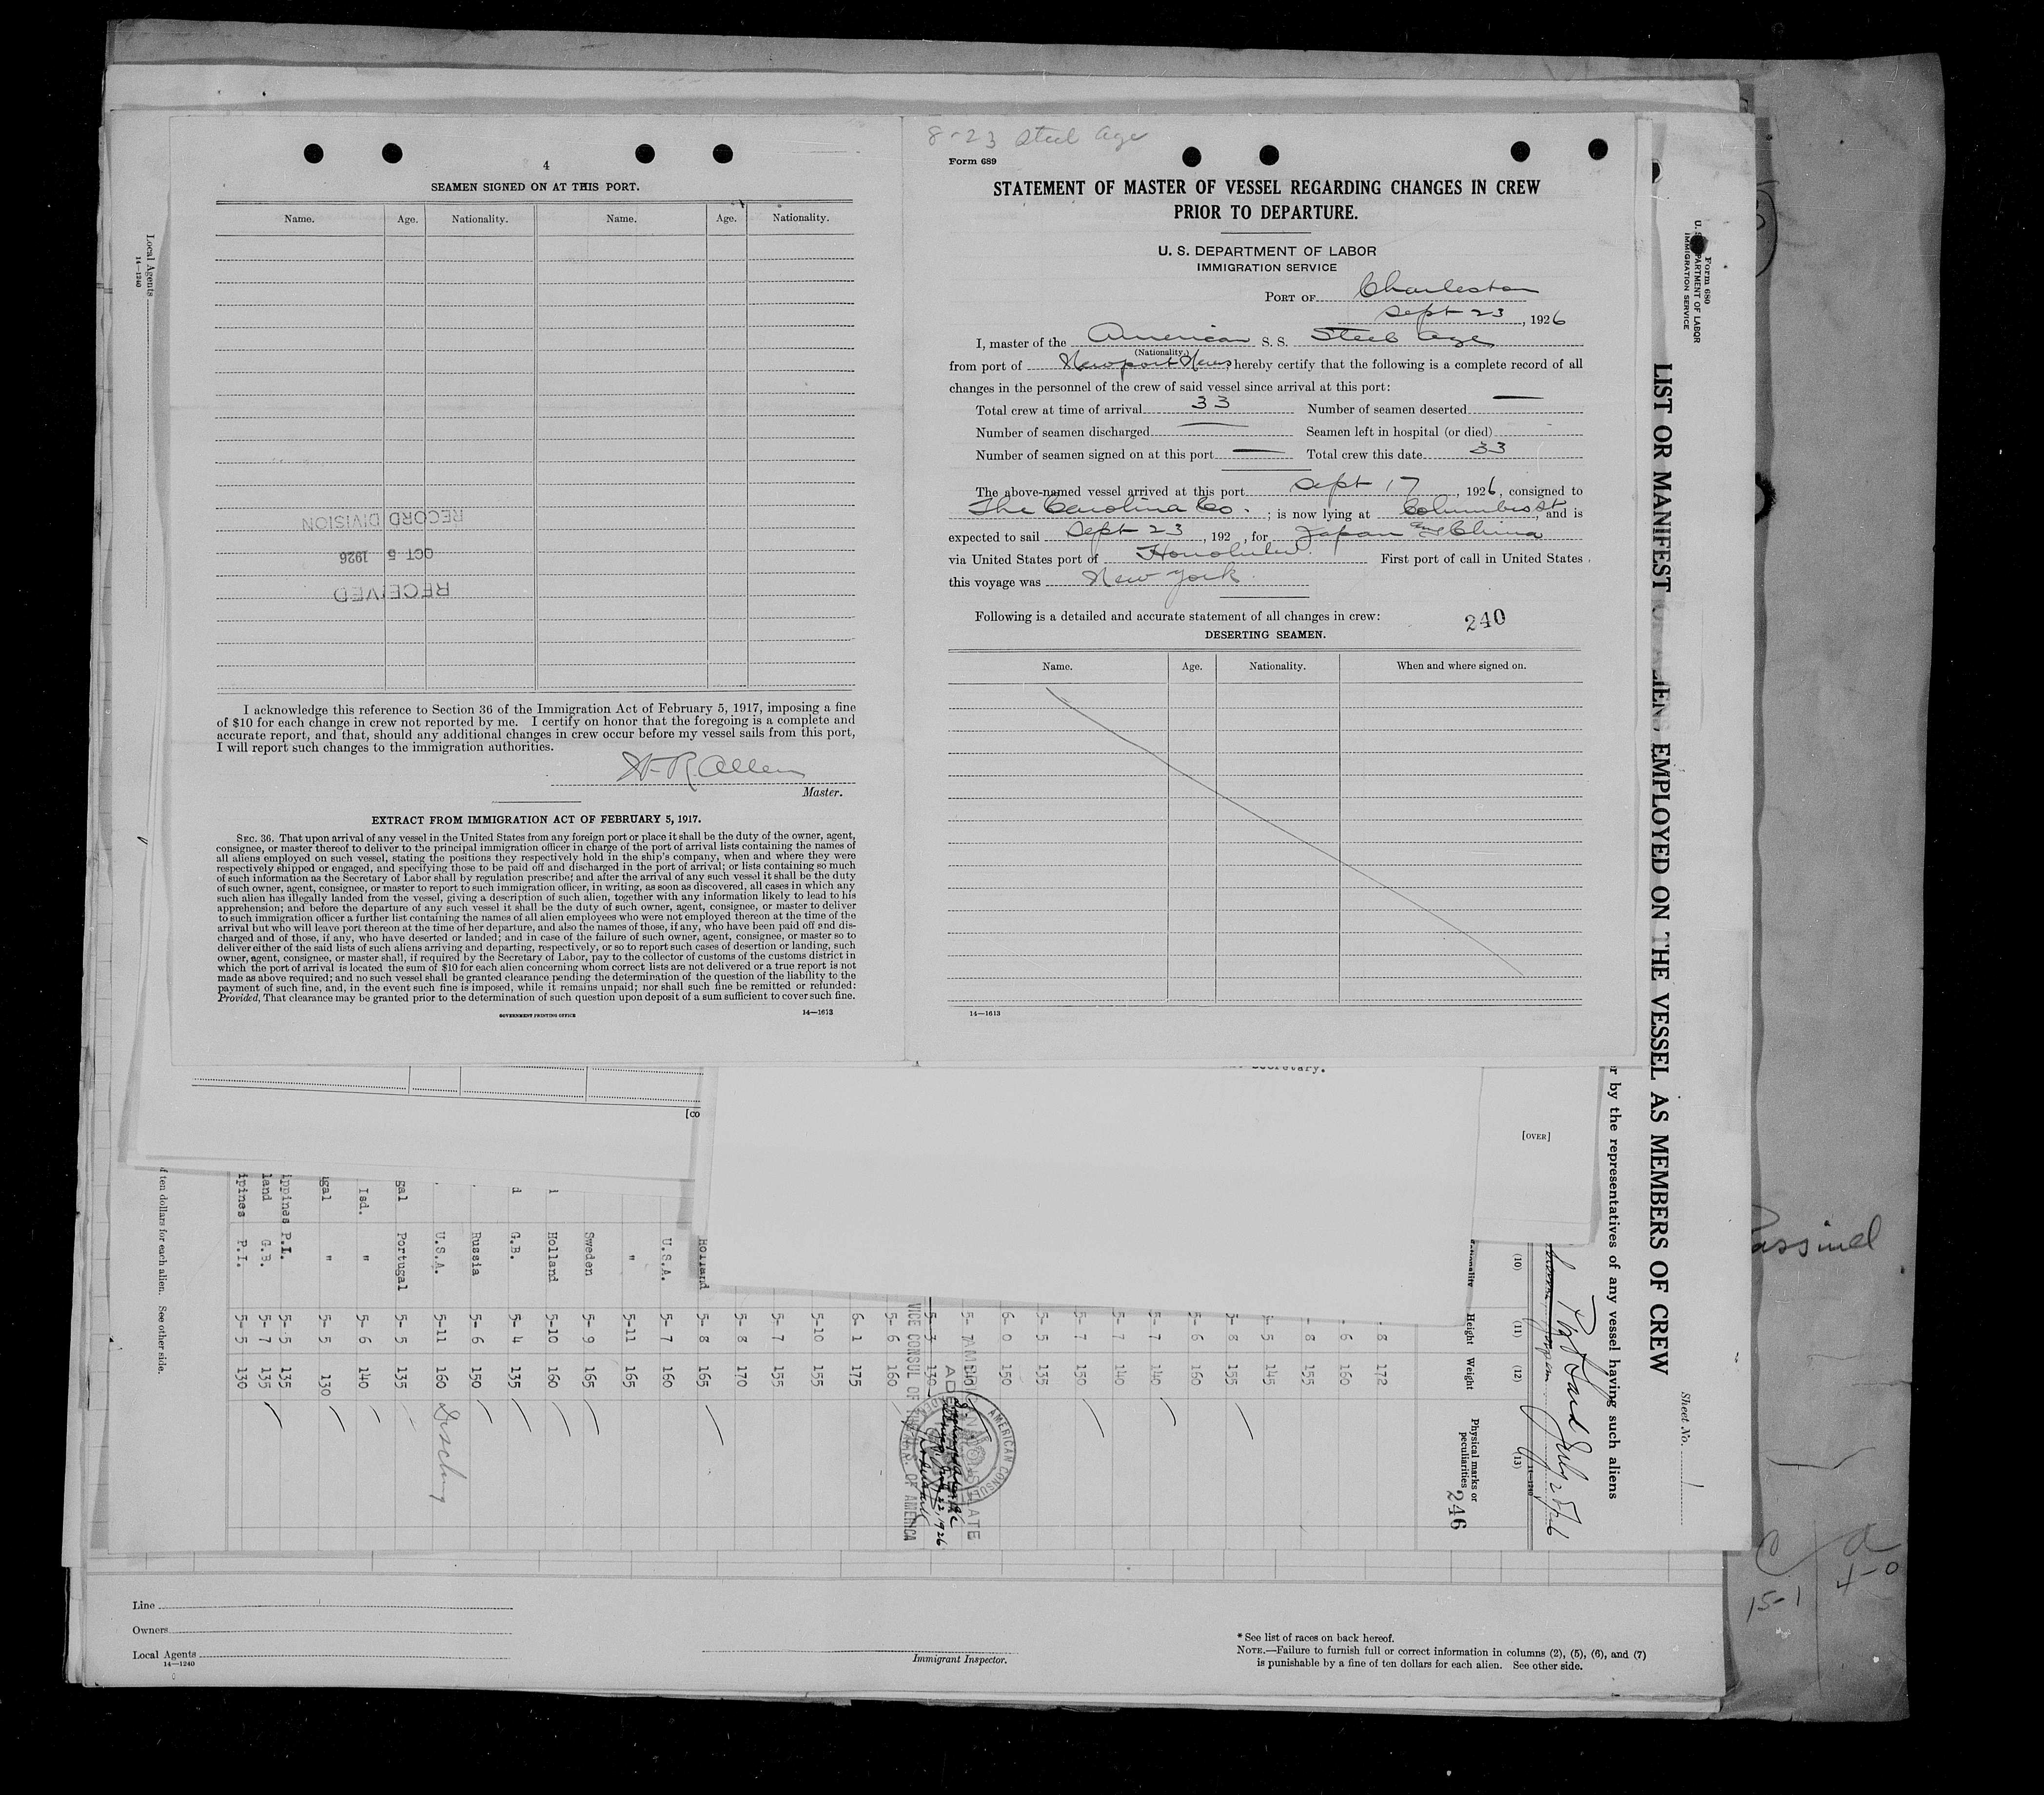 4
SEAMEN SIGNED ON AT THIS PORT.
Name. Age. Nationality. Name. Age. Nationality.
RECORD DIVISION
OCT 5 1926
RECEIVED
I acknowledge this reference to Section 36 of the Immigration Act of February 5, 1917, imposing a fine
of $10 for each change in crew not reported by me. I certify on honor that the foregoing is a complete and
accurate report, and that, should any additional changes in crew occur before my vessel sails from this port,
I will report such changes to the immigration authorities.
H. R. Allen
Master.
EXTRACT FROM IMMIGRATION ACT OF FEBRUARY 5, 1917.
SEC. 36. That upon arrival of any vessel in the United States from any foreign port or place it shall be the duty of the owner, agent,
consignee, or master thereof to deliver to the principal immigration officer in charge of the port of arrival lists containing the names of
all aliens employed on such vessel, stating the positions they respectively hold in the ship's company, when and where they were
respectively shipped or engaged, and specifying those to be paid off and discharged in the port of arrival; or lists containing so much
of such information as the Secretary of Labor shall by regulation prescribe; and after the arrival of any such vessel it shall be the duty
of such owner, agent, consignee, or master to report to such immigration officer, in writing, as soon as discovered, all cases in which any
such alien has illegally landed from the vessel, giving a description of such alien, together with any information likely to lead to his
apprehension; and before the departure of any such vessel it shall be the duty of such owner, agent, consignee, or master to deliver
to such immigration officer a further list containing the names of all alien employees who were not employed thereon at the time of the
arrival but who will leave port thereon at the time of her departure, and also the names of those, if any, who have been paid off and dis-
charged and of those, if any, who have deserted or landed; and in case of the failure of such owner, agent, consignee, or master so to
deliver either of the said lists of such aliens arriving and departing, respectively, or so to report such cases of desertion or landing, such
owner, agent, consignee, or master shall, if required by the Secretary of Labor, pay to the collector of customs of the customs district in
which the port of arrival is located the sum of $10 for each alien concerning whom correct lists are not delivered or a true report is not
made as above required; and no such vessel shall be granted clearance pending the determination of the question of the liability to the
payment of such fine, and, in the event such fine is imposed, while it remains unpaid; nor shall such fine be remitted or refunded:
Provided, That clearance may be granted prior to the determination of such question upon deposit of a sum sufficient to cover such fine.
GOVERNMENT PRINTING OFFICE 14—1613
8-23 Steel Age
Form 689
STATEMENT OF MASTER OF VESSEL REGARDING CHANGES IN CREW
PRIOR TO DEPARTURE.
U. S. DEPARTMENT OF LABOR
IMMIGRATION SERVICE
PORT OF Charleston
Sept 23, 1926
I, master of the American S. S. Steel Age
(Nationality.)
from port of Newport News hereby certify that the following is a complete record of all
changes in the personnel of the crew of said vessel since arrival at this port:
Total crew at time of arrival 33 Number of seamen deserted —
Number of seamen discharged — Seamen left in hospital (or died) -
Number of seamen signed on at this port — Total crew this date 33
The above-named vessel arrived at this port Sept 17, 1926, consigned to
The Carolina Co. ; is now lying at Columbus St, and is
expected to sail Sept 23, 192 , for Japan and China
via United States port of Honolulu. First port of call in United States
this voyage was New York
Following is a detailed and accurate statement of all changes in crew:
240
DESERTING SEAMEN.
Name. Age. Nationality. When and where signed on.
14—1613
Local Agents
14—1240
Form 680
U. S. DEPARTMENT OF LABOR
IMMIGRATION SERVICE
LIST OR MANIFEST OF ALIENS EMPLOYED ON THE VESSEL AS MEMBERS OF CREW
Sheet No. 1
r by the representatives of any vessel having such aliens
[OVER]
[CO
Secretary.
(10) (11) (12) (13)
Height Weight Physical marks or peculiarities
246
8 172
6 160
8 155
5 145
8 155
6 160
7 140
7 140
7 150
5 135
6 0 150
5- 7 140
5- 3 130
5- 6 160
6 1 175
5-10 155
5- 7 155
5- 8 170
Holland 5- 8 165
U.S.A. 5- 7 160
" 5-11 165
Sweden 5- 9 165
Holland 5-10 160
G.B. 5- 4 135
Russia 5- 6 150
U.S.A. 5-11 160 Discharg
gal Portugal 5- 5 135
Isd. " 5- 6 140
gal " 5- 5 130
ippines P.I. 5- 5 135
land G.B. 5- 7 135
ipines P.I. 5- 5 130
AMERICAN CONSULATE
ADEN
VICE CONSUL OF THE U.S. OF AMERICA
f ten dollars for each alien. See other side.
Line
Owners
Local Agents
14—1240
Immigrant Inspector.
* See list of races on back hereof.
NOTE.—Failure to furnish full or correct information in columns (2), (5), (6), and (7)
is punishable by a fine of ten dollars for each alien. See other side.
15-1